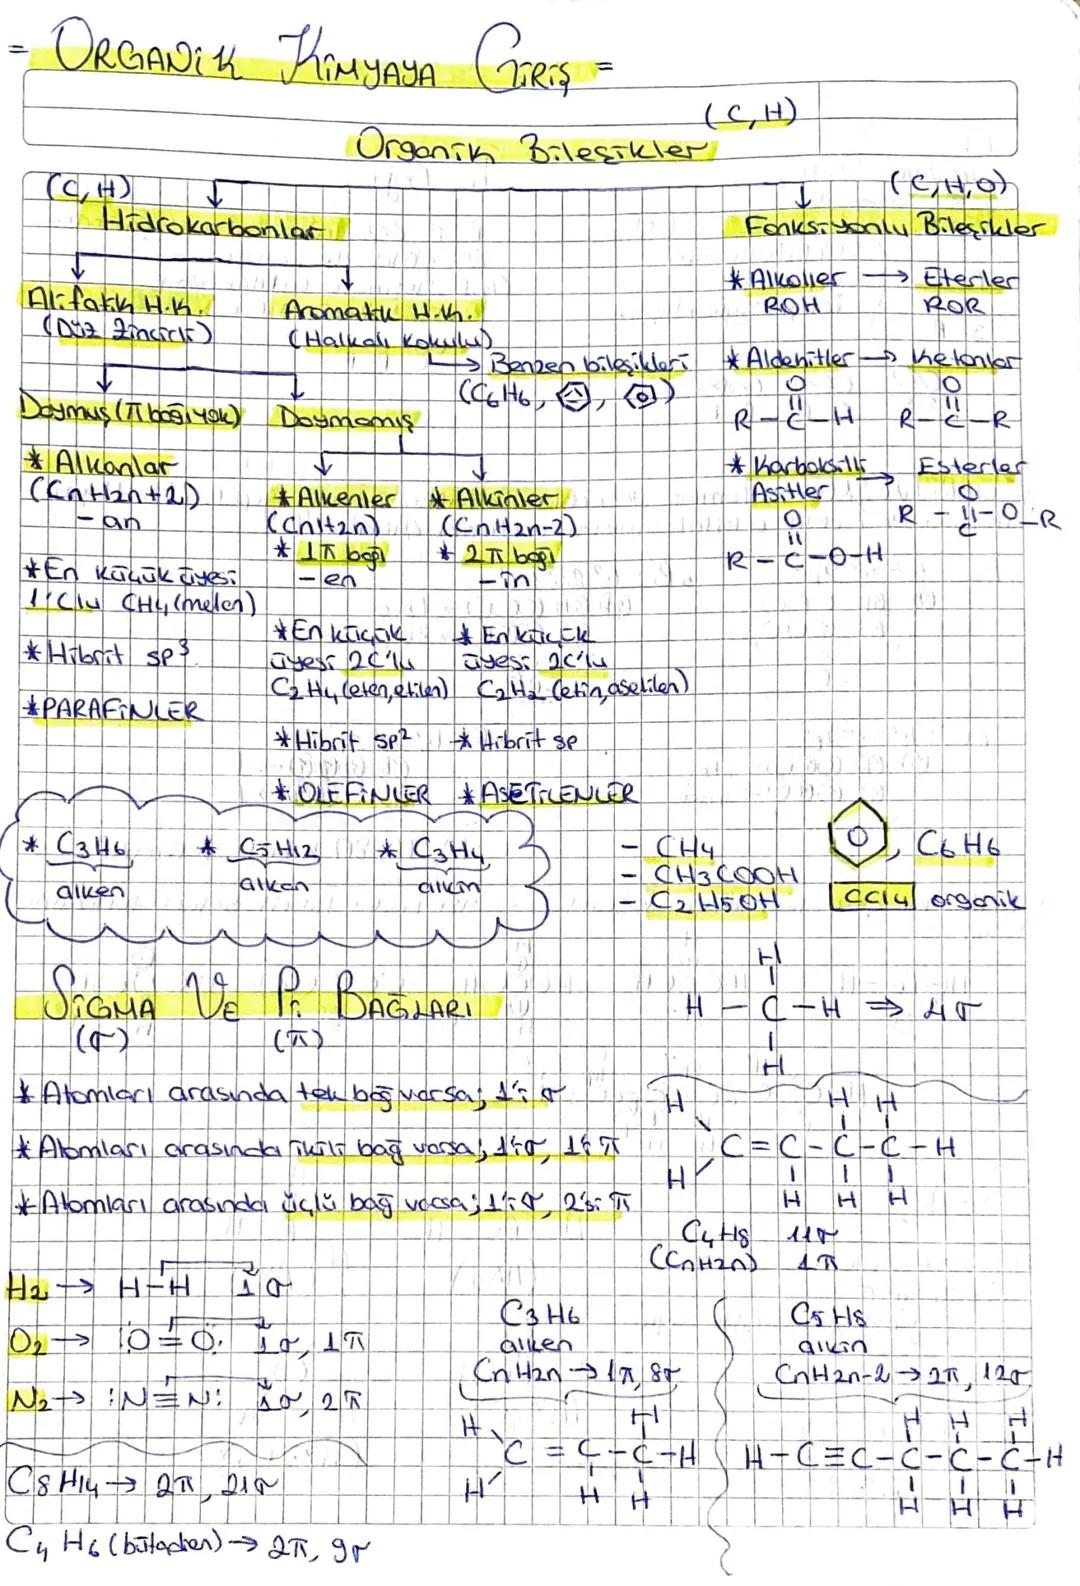 = ORGANİK KİMYAYA GİRİŞ =
(C, H)
Organik Bileşikler
(C, H)
Hidrokarbonlar
Alifatik H.K.
(Düz Zincirli)
Aromatik H.K.
(Halkalı Kokulu)
→ Benzen bileşikleri
(C6H6, , )
Doymuş (π bağı yok)
Doymamış
* Alkanlar
(CnH2n+2)
- an
* En küçük üyesi
1'Clu CH4 (meten)
* Hibrit sp³
* PARAFİNLER
* Alkenler
(CnH2n)
* 1π bağı
- en
* En küçük
üyesi 2C'lu
C2H4 (eten, etilen)
* Hibrit sp²
* OLEFİNLER
* Alkinler
(CnH2n-2)
* 2π bağı
- in
* En küçük
üyesi 2C'lu
C2H2 (etin, asetilen)
* Hibrit sp
* ASETİLENLER
(C, H, O)
Fonksiyonlu Bileşikler
* Alkoller → Eterler
ROH ROR
* Aldehitler → Ketonlar
O O
R - C - H R - C - R
* Karboksilli → Esterler
Asitler
O O
R - C - O - R
R - C - O - H
* C3H6 * C5H12 * C3H4
alken alkan alkin
- CH4
- CH3COOH
- C2H5OH
, C6H6
CCl4 organik
SİGMA VE Pİ BAĞLARI
(σ) (π)
* Atomları arasında tek bağ varsa; 1'i σ
* Atomları arasında ikili bağ varsa; 1'i σ, 1'i π
* Atomları arasında üçlü bağ varsa; 1'i σ, 2'si π
H
H - C - H ⇒ 4σ
H
H H H
C = C - C - C - H
H H H H
C4H8 11σ
(CnH2n) 1π
H2 → H - H 1σ
O2 → :O = O: 1σ, 1π
N2 → :N ≡ N: 1σ, 2π
C8H14 → 2π, 21σ
C4H6 (bütadien) → 2π, 9σ
C3H6
alken
CnH2n → 1π, 8σ
H H
C = C - C - H
H H H
C5H8
alkin
CnH2n-2 → 2π, 12σ
H H H
H - C ≡ C - C - C - C - H
H H H